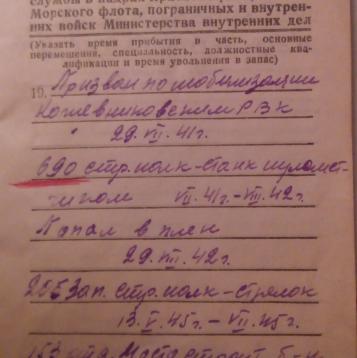 службы в
Морского флота, пограничных и внутрен-
них войск Министерства внутренних дел
(Указать время прибытия в часть, основные
перемещения, специальность, должностные ква-
лификации и время увольнения в запас)
19. Призван по мобилизации
Кожевниковским РВК
29.VII.41г.
690 стр. полк - станк пулемет-
чиком VII.41г. - VIII.42г.
Попал в плен
29.VIII.42г.
255 зап. стр. полк - стрелок
13.V.45г. - VII.45г.